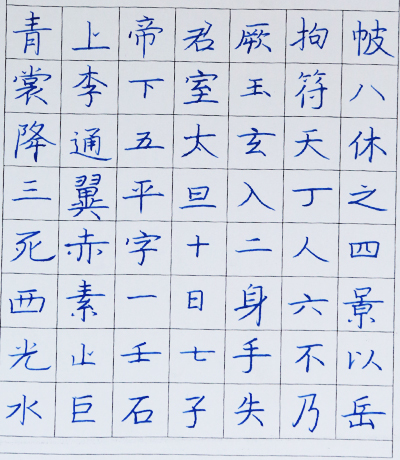 青上帝君厥拘帔
裳李下室玉符八
降通五太玄天休
三翼平旦入丁之
死赤字十二人四
西素一日身六景
光止壬七手不以
水巨石子失乃岳